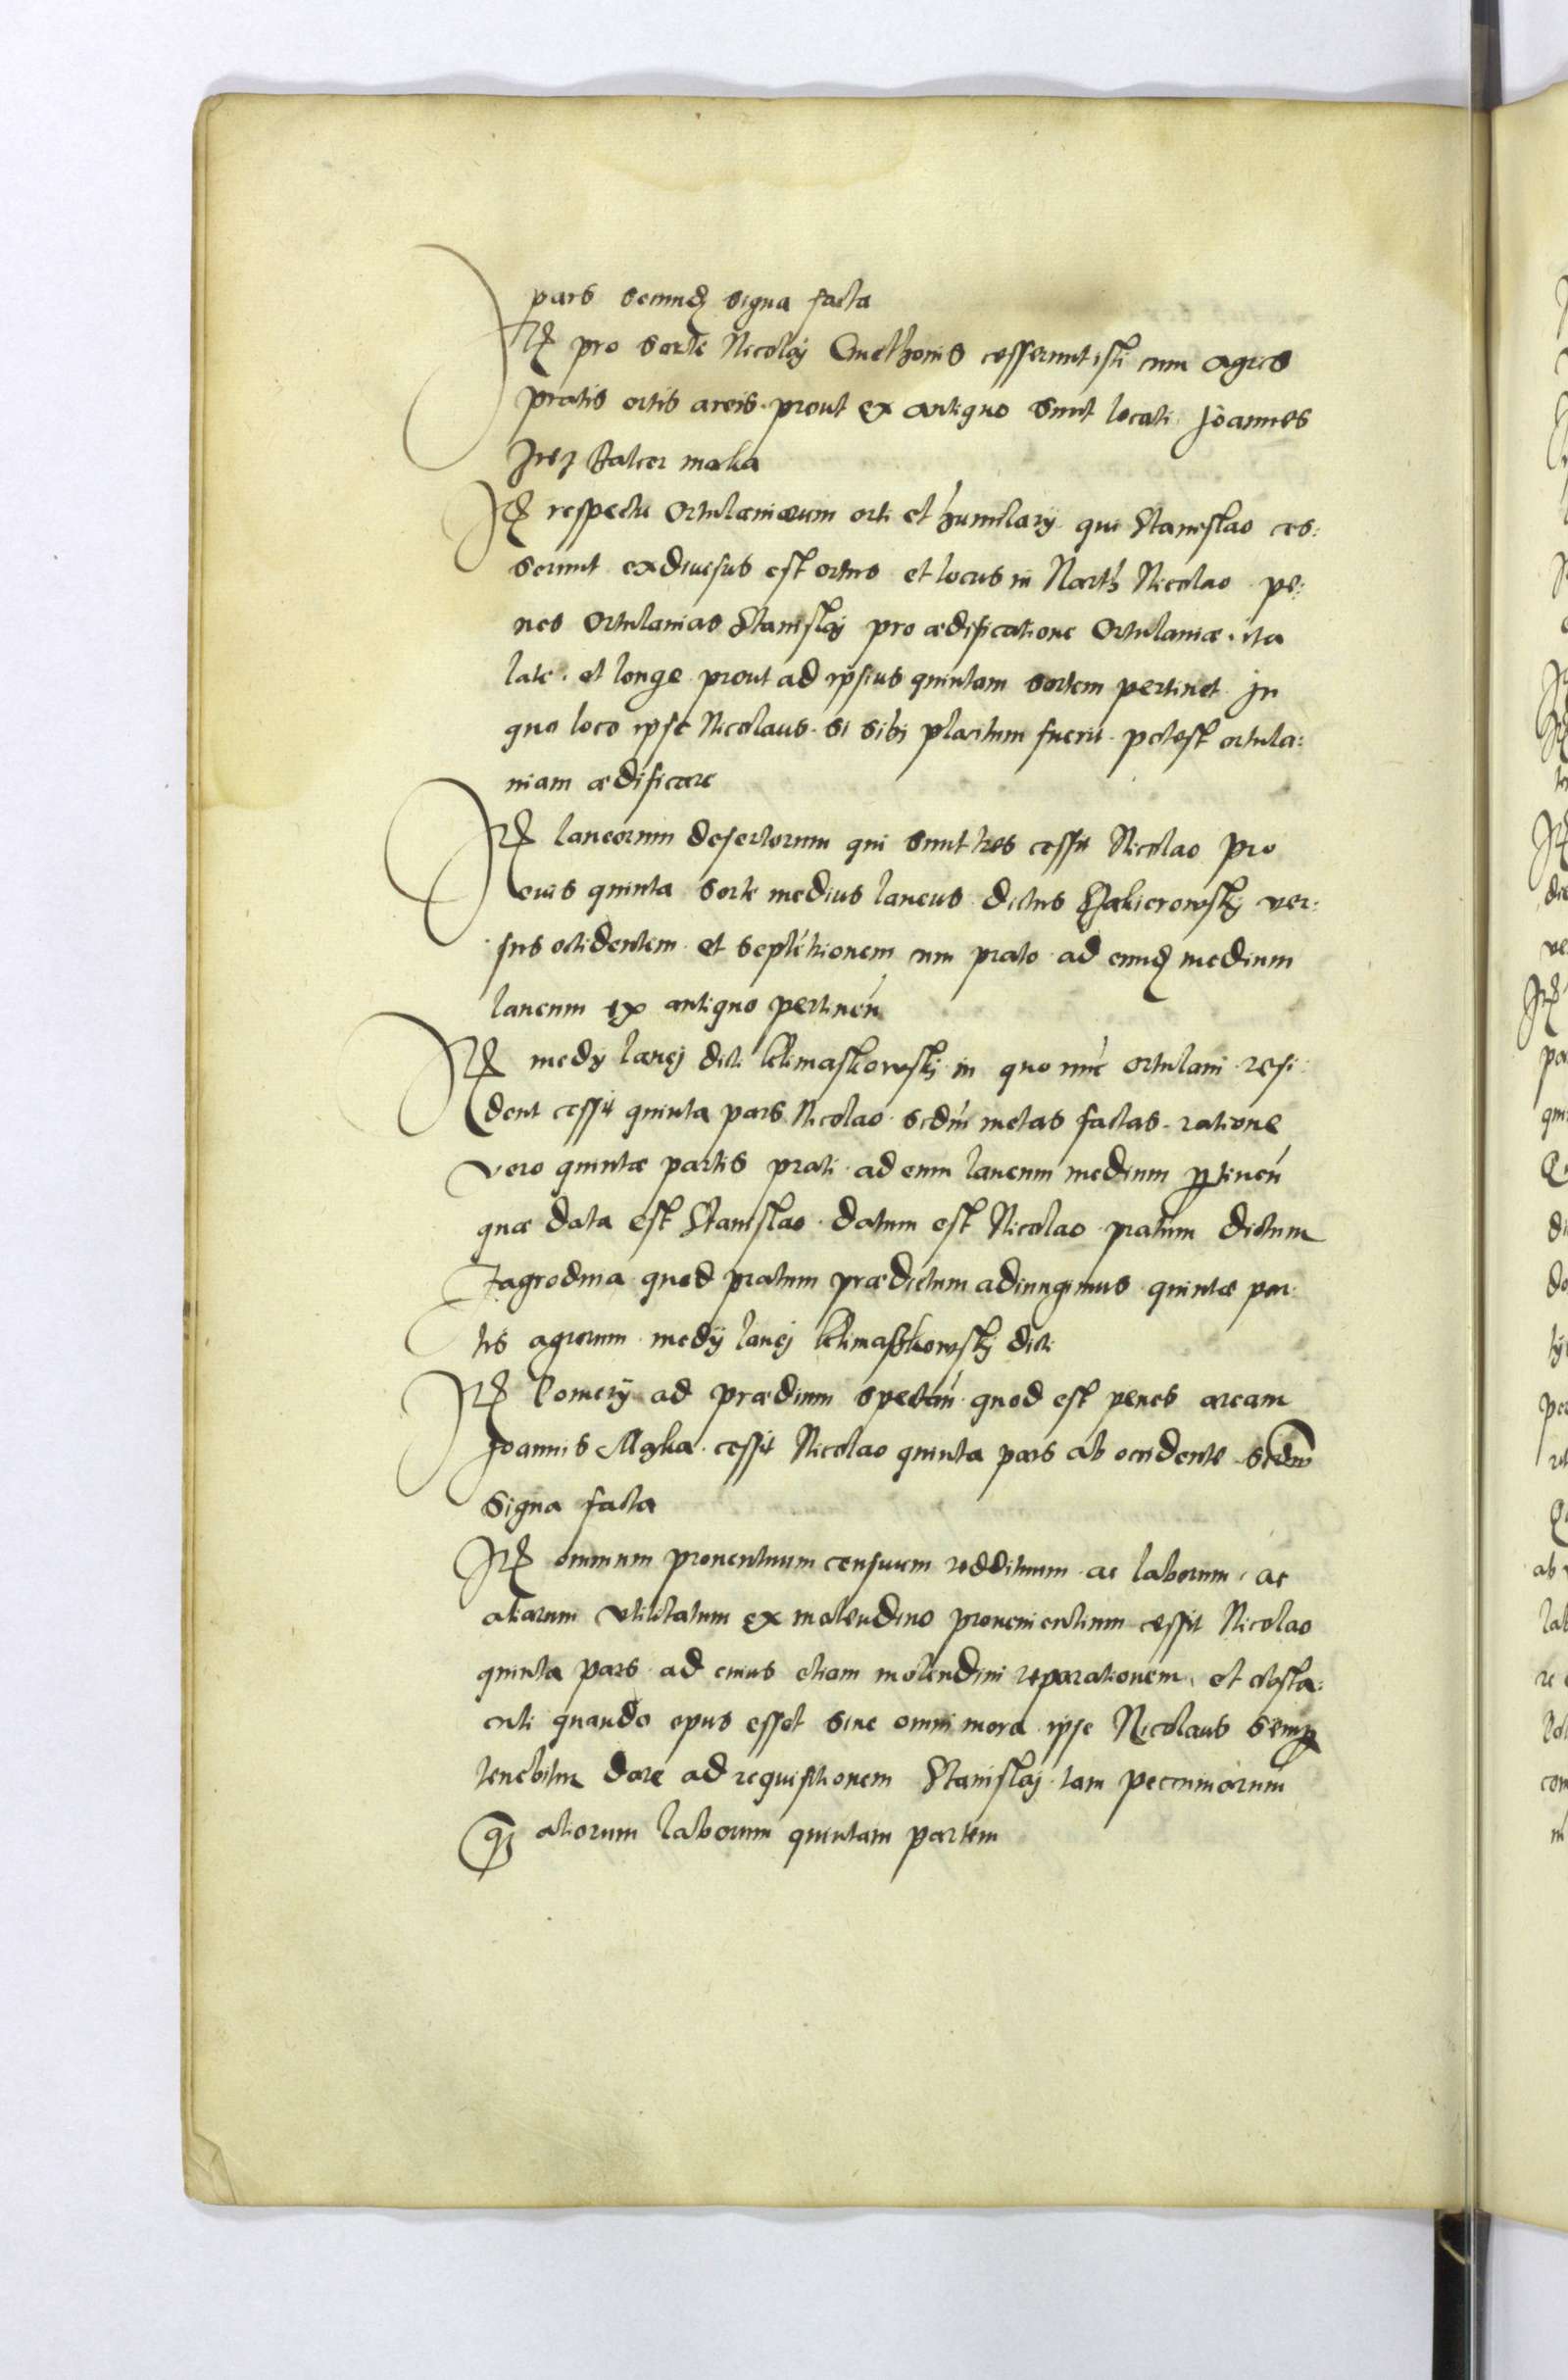 pars secundū signa facta
Itē pro sorte Nicolaj Cmethones cesserunt isti cum agris
pratis ortis areis prout ex antiquo sunt locati Joannes
Jrez Balcer maka
Itē respectu Ortulaniarum orti et humilarÿ qui Stanislao ces:
serunt ex diuersus est ortus et locus in Narth Nicolao pe:
nes Ortulanias Stanislaj pro ædificatione Ortulaniæ ita
late et longe prout ad ipsius quintam sortem pertinet in
quo loco ipse Nicolaus si sibi placitum fuerit potest ortula:
niam ædificare
Itē laneorum desertorum qui sunt tres cessit Nicolao pro
eius quinta sorte medius laneus dictus Halierowskj ver:
sus occidentem et septētrionem cum prato ad eundē medium
laneum ex antiquo pertineń
Itē medÿ lanej dicti klimaskowskj in quo nūc ortulani resi:
dent cessit quinta pars Nicolao scdm̄ metas factas ratione
vero quintæ partis prati ad eum laneum medium ptineń
quæ data est Stanislao datum est Nicolao pratum dictum
Zagrodnia quod pratum prædictum adiungimus quintæ par:
tis agrorum medÿ lanej klimaszkowskj dicti
Itē Pomerÿ ad prædium spectań quod est penes aream
Joannis Maka cessit Nicolao quinta pars ab occidente scdm̄
signa facta
Itē omnium prouentuum censuum reddituum ac laborum ac
aliarum vtilitatum ex molendino prouenientium cessit Nicolao
quinta pars ad cuius etiam molendini reparationem et obsta:
culi quando opus esset sine omni mora ipse Nicolaus semp
tenebitur dare ad requisitionem Stanislaj tam pecuniarum
qz aliorum laborum quintam partem